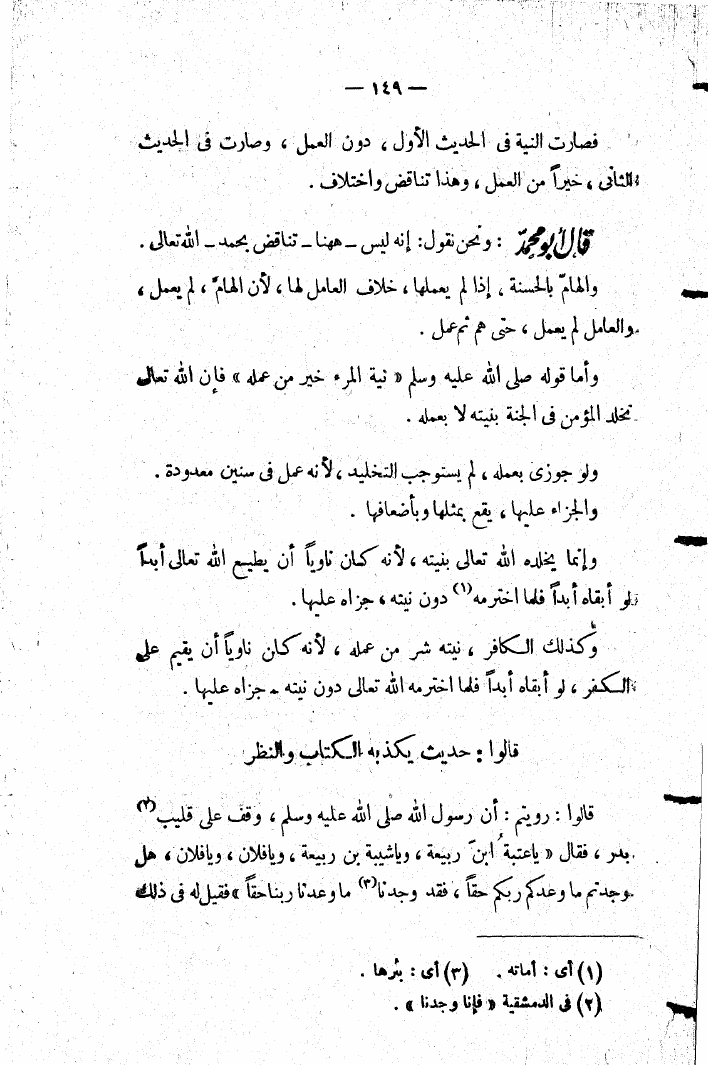 — ١٤٩ —
فصارت النية فى الحديث الأول ، دون العمل ، وصارت فى الحديث
الثانى ، خيراً من العمل ، وهذا تناقض واختلاف .
قال أبو محمد : ونحن نقول : إنه ليس – ههنا – تناقض بحمد – الله تعالى .
والهامّ بالحسنة ، إذا لم يعملها ، خلاف العامل لها ، لأن الهامّ ، لم يعمل ،
والعامل لم يعمل ، حتى هم ثم عمل .
وأما قوله صلى الله عليه وسلم « نية المرء خير من عمله » فإن الله تعالى
يخلد المؤمن فى الجنة بنيته لا بعمله .
ولو جوزى بعمله ، لم يستوجب التخليد ، لأنه عمل فى سنين معدودة .
والجزاء عليها ، يقع بمثلها وبأضعافها .
وإنما يخلده الله تعالى بنيته ، لأنه كان ناوياً أن يطيع الله تعالى أبداً
لو أبقاه أبداً فلما اخترمه(١) دون نيته ، جزاه عليها .
وكذلك الكافر ، نيته شر من عمله ، لأنه كان ناوياً أن يقيم على
الكفر ، لو أبقاه أبداً فلما اخترمه الله تعالى دون نيته – جزاه عليها .
قالوا : حديث يكذبه الكتاب والنظر
قالوا : رويتم : أن رسول الله صلى الله عليه وسلم ، وقف على قليب(٢)
بدر ، فقال « ياعتبةُ ابنَ ربيعة ، وياشيبة بن ربيعة ، ويافلان ، ويافلان ، هل
وجدتم ما وعدكم ربكم حقاً ، فقد وجدنا(٣) ما وعدنا ربنا حقاً » فقيل له فى ذلك
(١) أى : أماته . (٣) أى : بئرها .
(٢) فى الدمشقية « فإنا وجدنا » .